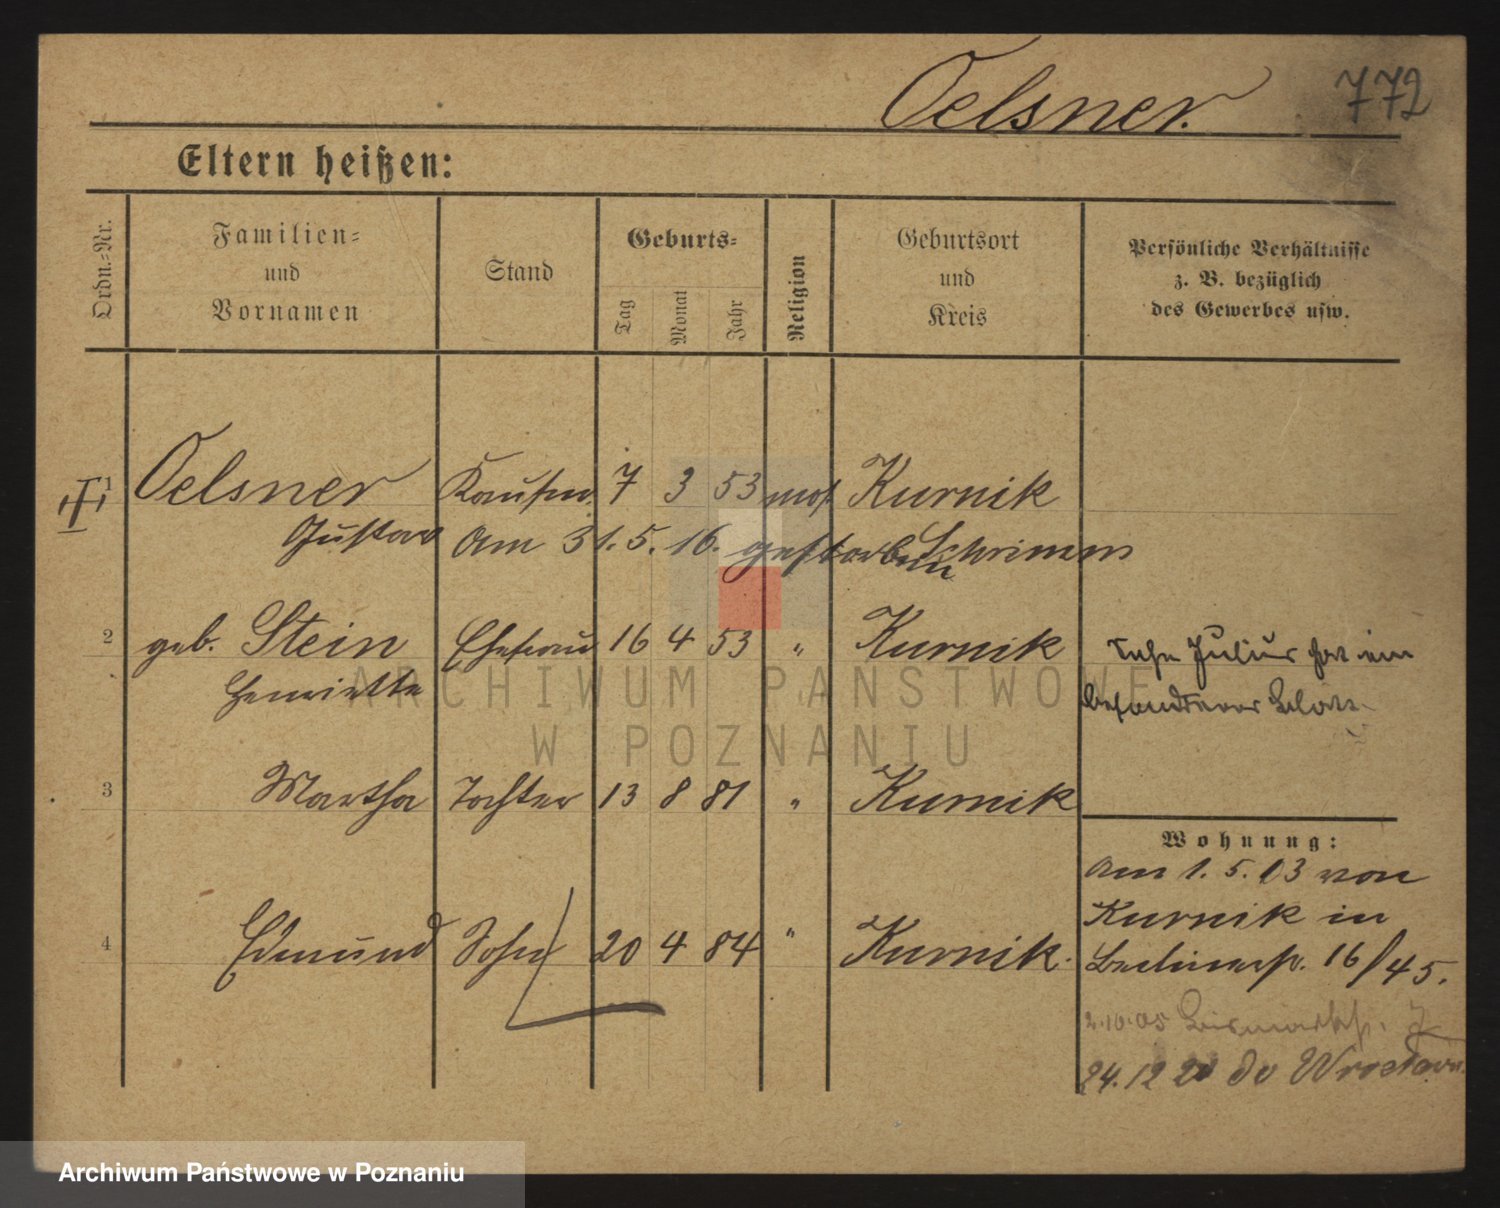 Oelsner. 772
Eltern heißen:
Ordn.-Nr.
Familien- und Vornamen
Stand
Geburts-
Tag Monat Jahr
Religion
Geburtsort und Kreis
Persönliche Verhältnisse
z. B. bezüglich
des Gewerbes usw.
1 Oelsner Kaufm. 7 3 53 mos. Kurnik
Gustav Am 31.5.16. gestorben Schrimm
2 geb. Stein Ehefrau 16 4 53 " Kurnik
Henriette
Sohn Julius hat ein
besonderes Blatt.
3 Martha Tochter 13 8 81 " Kurnik
4 Edmund Sohn 20 4 84 " Kurnik.
Wohnung:
Am 1.5.03 von
Kurnik in
Berlinerstr. 16/45.
2.10.05 Bismarckstr. 7
24.12 20 do Wrocławia
ARCHIWUM PAŃSTWOWE
W POZNANIU
Archiwum Państwowe w Poznaniu